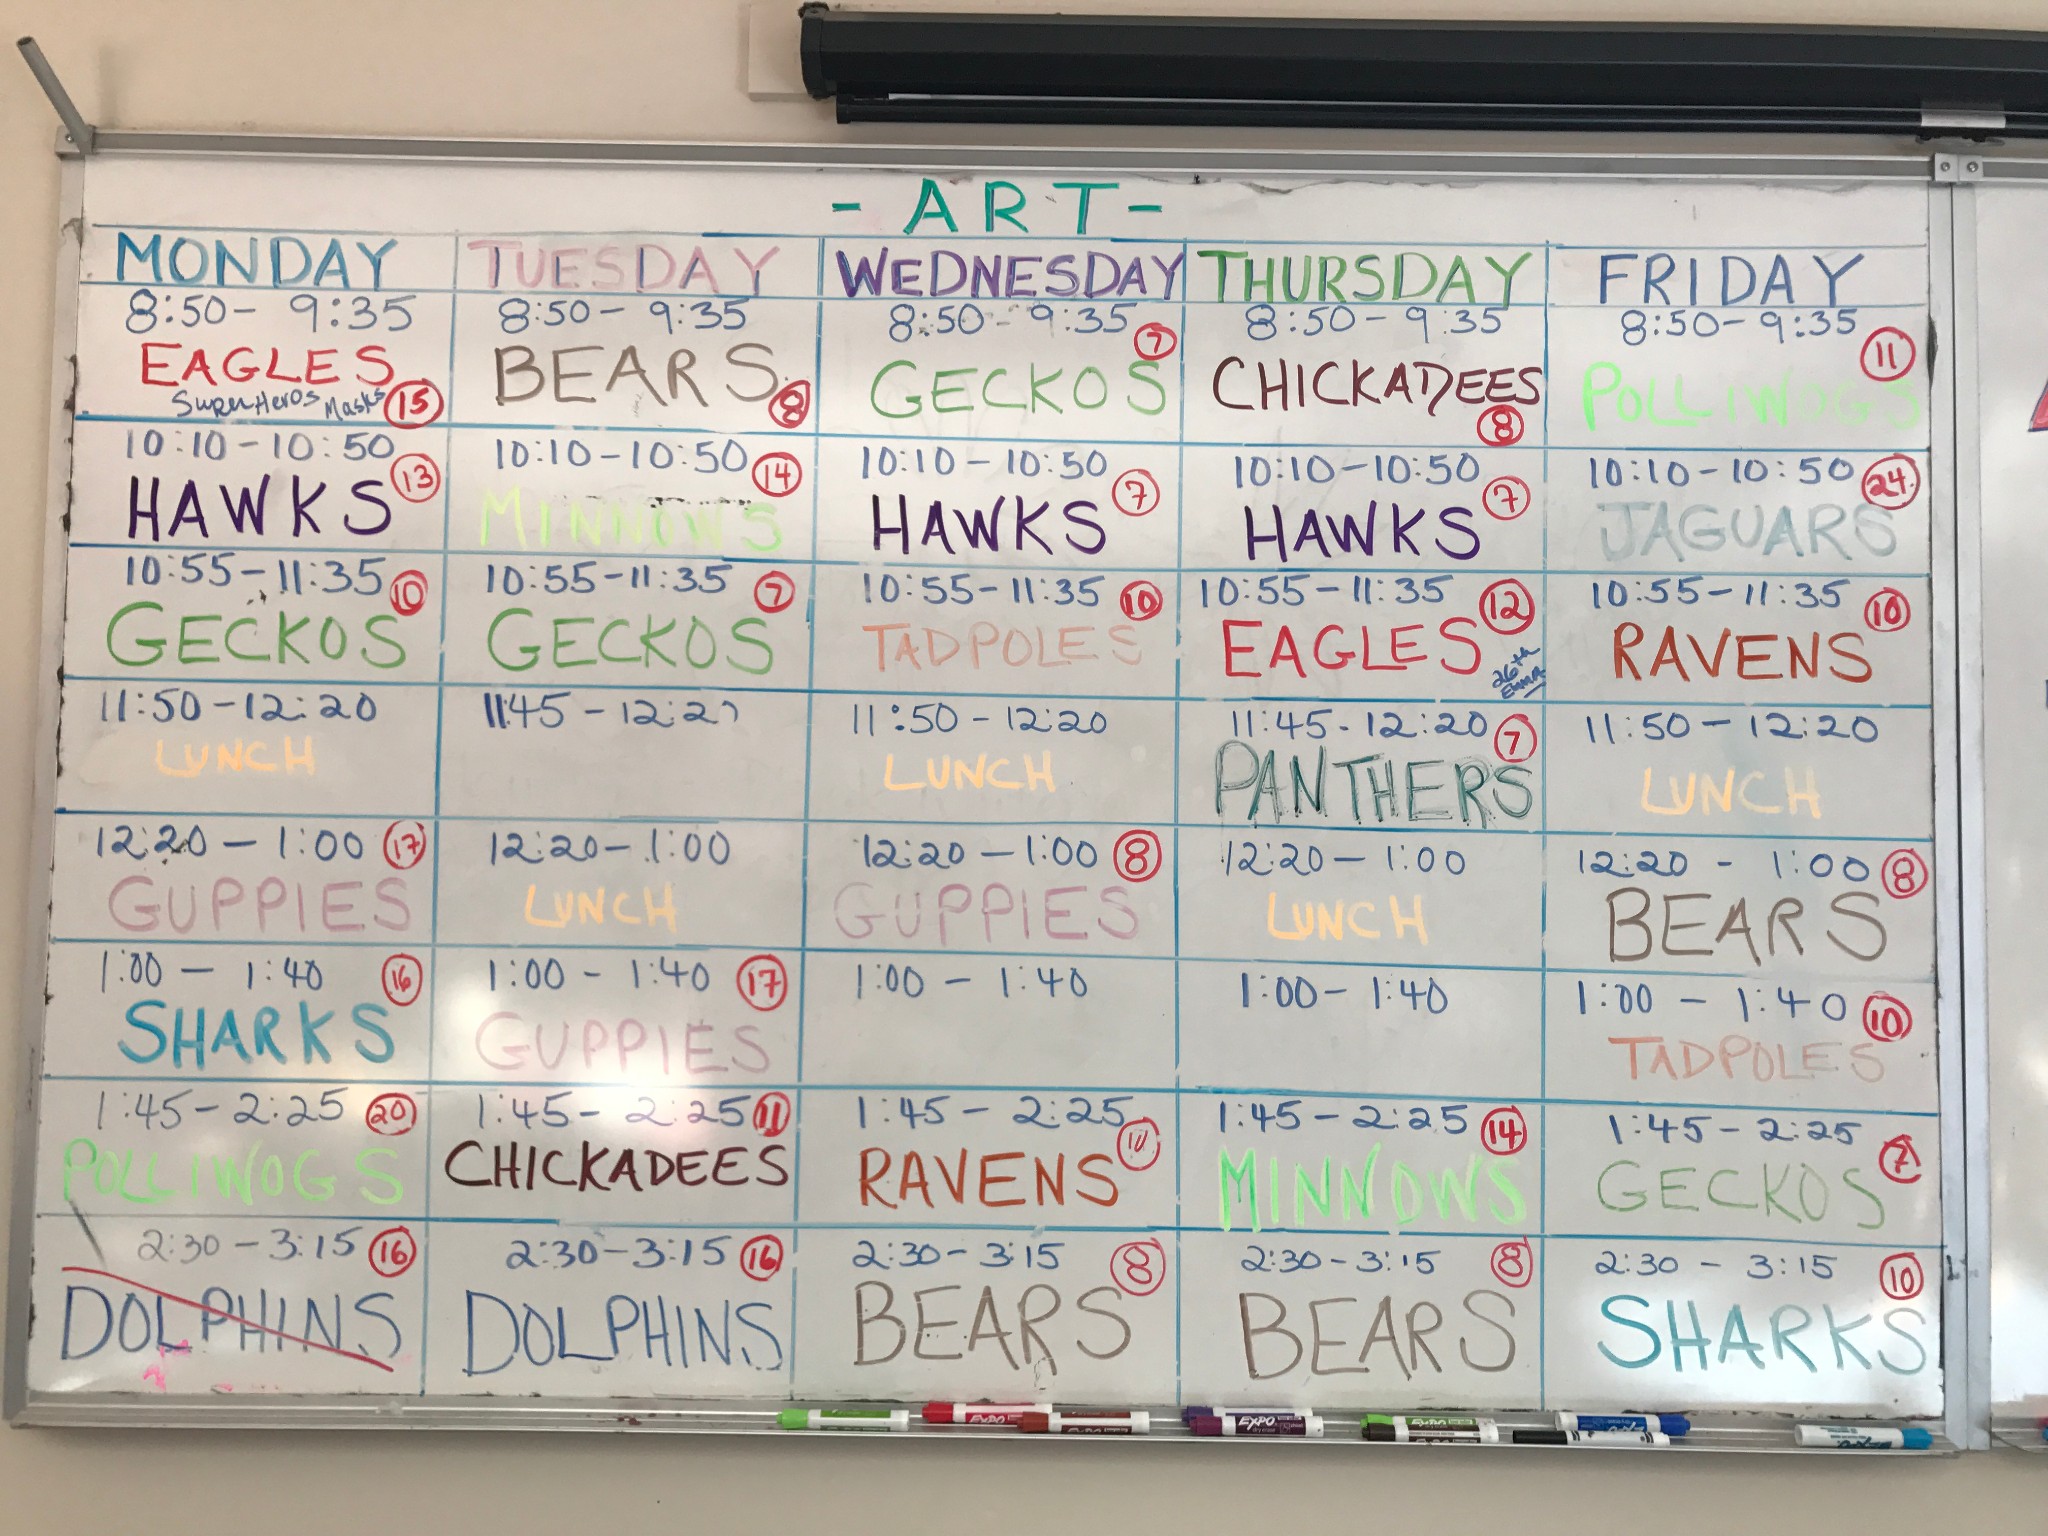 - ART -
MONDAY
8:50 - 9:35
EAGLES
SuperHeros Masks
15
10:10 - 10:50
13
HAWKS
10:55 - 11:35
10
GECKOS
11:50 - 12:20
LUNCH
12:20 - 1:00
17
GUPPIES
1:00 - 1:40
16
SHARKS
1:45 - 2:25
20
POLLIWOGS
2:30 - 3:15
16
DOLPHINS
TUESDAY
8:50 - 9:35
BEARS
8
10:10 - 10:50
14
MINNOWS
10:55 - 11:35
7
GECKOS
11:45 - 12:20
12:20 - 1:00
LUNCH
1:00 - 1:40
17
GUPPIES
1:45 - 2:25
11
CHICKADEES
2:30 - 3:15
16
DOLPHINS
WEDNESDAY
8:50 - 9:35
7
GECKOS
10:10 - 10:50
7
HAWKS
10:55 - 11:35
10
TADPOLES
11:50 - 12:20
LUNCH
12:20 - 1:00
8
GUPPIES
1:00 - 1:40
1:45 - 2:25
10
RAVENS
2:30 - 3:15
8
BEARS
THURSDAY
8:50 - 9:35
CHICKADEES
8
10:10 - 10:50
7
HAWKS
10:55 - 11:35
12
EAGLES
26th
Emma
11:45 - 12:20
7
PANTHERS
12:20 - 1:00
LUNCH
1:00 - 1:40
1:45 - 2:25
14
MINNOWS
2:30 - 3:15
8
BEARS
FRIDAY
8:50 - 9:35
11
POLLIWOGS
10:10 - 10:50
24
JAGUARS
10:55 - 11:35
10
RAVENS
11:50 - 12:20
LUNCH
12:20 - 1:00
8
BEARS
1:00 - 1:40
10
TADPOLES
1:45 - 2:25
7
GECKOS
2:30 - 3:15
10
SHARKS
EXPO
EXPO
EXPO